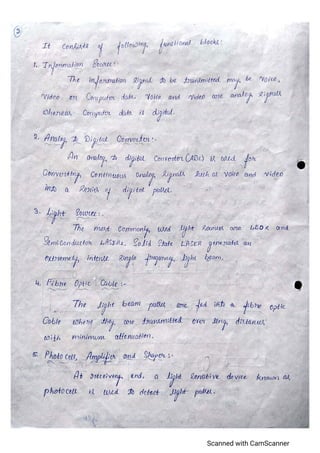 3
It consists of following functional blocks:
1. Information Source:
The information signal to be transmitted may be voice,
video or computer data. Voice and video are analog signals
whereas computer data is digital.
2. Analog to Digital Converter:-
An analog to digital converter (ADC) is used for
converting continuous analog signals such as voice and video
into a series of digital pulses.
3. Light Source:-
The most commonly used light sources are LEDs and
semiconductor LASERs. Solid state LASER generates an
extremely intense single frequency light beam.
4. Fibre Optic Cable :-
The light beam pulses are fed into a fibre optic
cable where they are transmitted over long distances
with minimum attenuation.
5. Photo cell, Amplifier and Shaper :-
At receiving end, a light sensitive device known as
photocell is used to detect light pulses.
Scanned with CamScanner